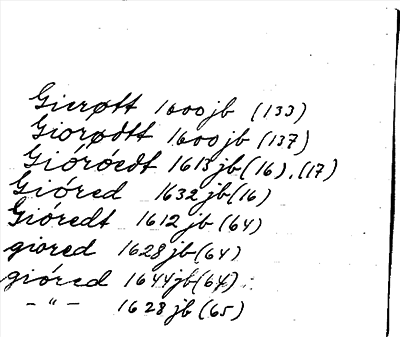 Gierøtt 1600 jb (133)
Giorødtt 1600 jb (137)
Gióróedt 1613 jb (16), (17)
Gióred 1632 jb (16)
Gióredt 1612 jb (64)
giored 1628 jb (64)
gióred 1644 jb (64)
– " – 1628 jb (65)